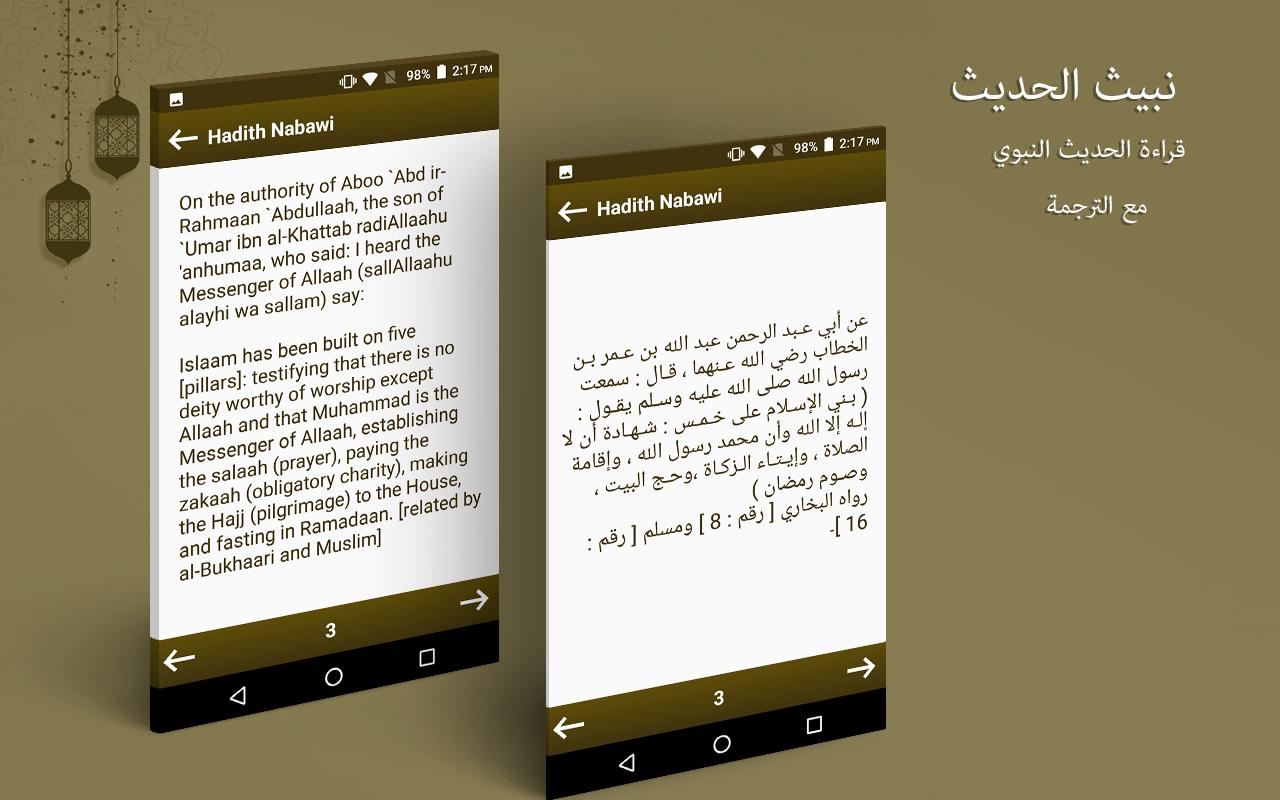 98% 2:17 PM
Hadith Nabawi
On the authority of Aboo `Abd ir-
Rahmaan `Abdullaah, the son of
`Umar ibn al-Khattab radiAllaahu
'anhumaa, who said: I heard the
Messenger of Allaah (sallAllaahu
alayhi wa sallam) say:
Islaam has been built on five
[pillars]: testifying that there is no
deity worthy of worship except
Allaah and that Muhammad is the
Messenger of Allaah, establishing
the salaah (prayer), paying the
zakaah (obligatory charity), making
the Hajj (pilgrimage) to the House,
and fasting in Ramadaan. [related by
al-Bukhaari and Muslim]
3
98% 2:17 PM
Hadith Nabawi
عن أبي عـبد الرحمن عبد الله بن عـمر بـن
الخطاب رضي الله عـنهما ، قـال : سمعت
رسول الله صلى الله عليه وسـلم يقـول :
( بـني الإسـلام على خـمـس : شـهـادة أن لا
إلـه إلا الله وأن محمد رسول الله ، وإقامة
الصلاة ، وإيـتـاء الـزكـاة ،وحـج البيت ،
وصـوم رمضان )
رواه البخاري [ رقم : 8 ] ومسلم [ رقم :
16 ]ـ
3
نبيث الحديث
قراءة الحديث النبوي
مع الترجمة